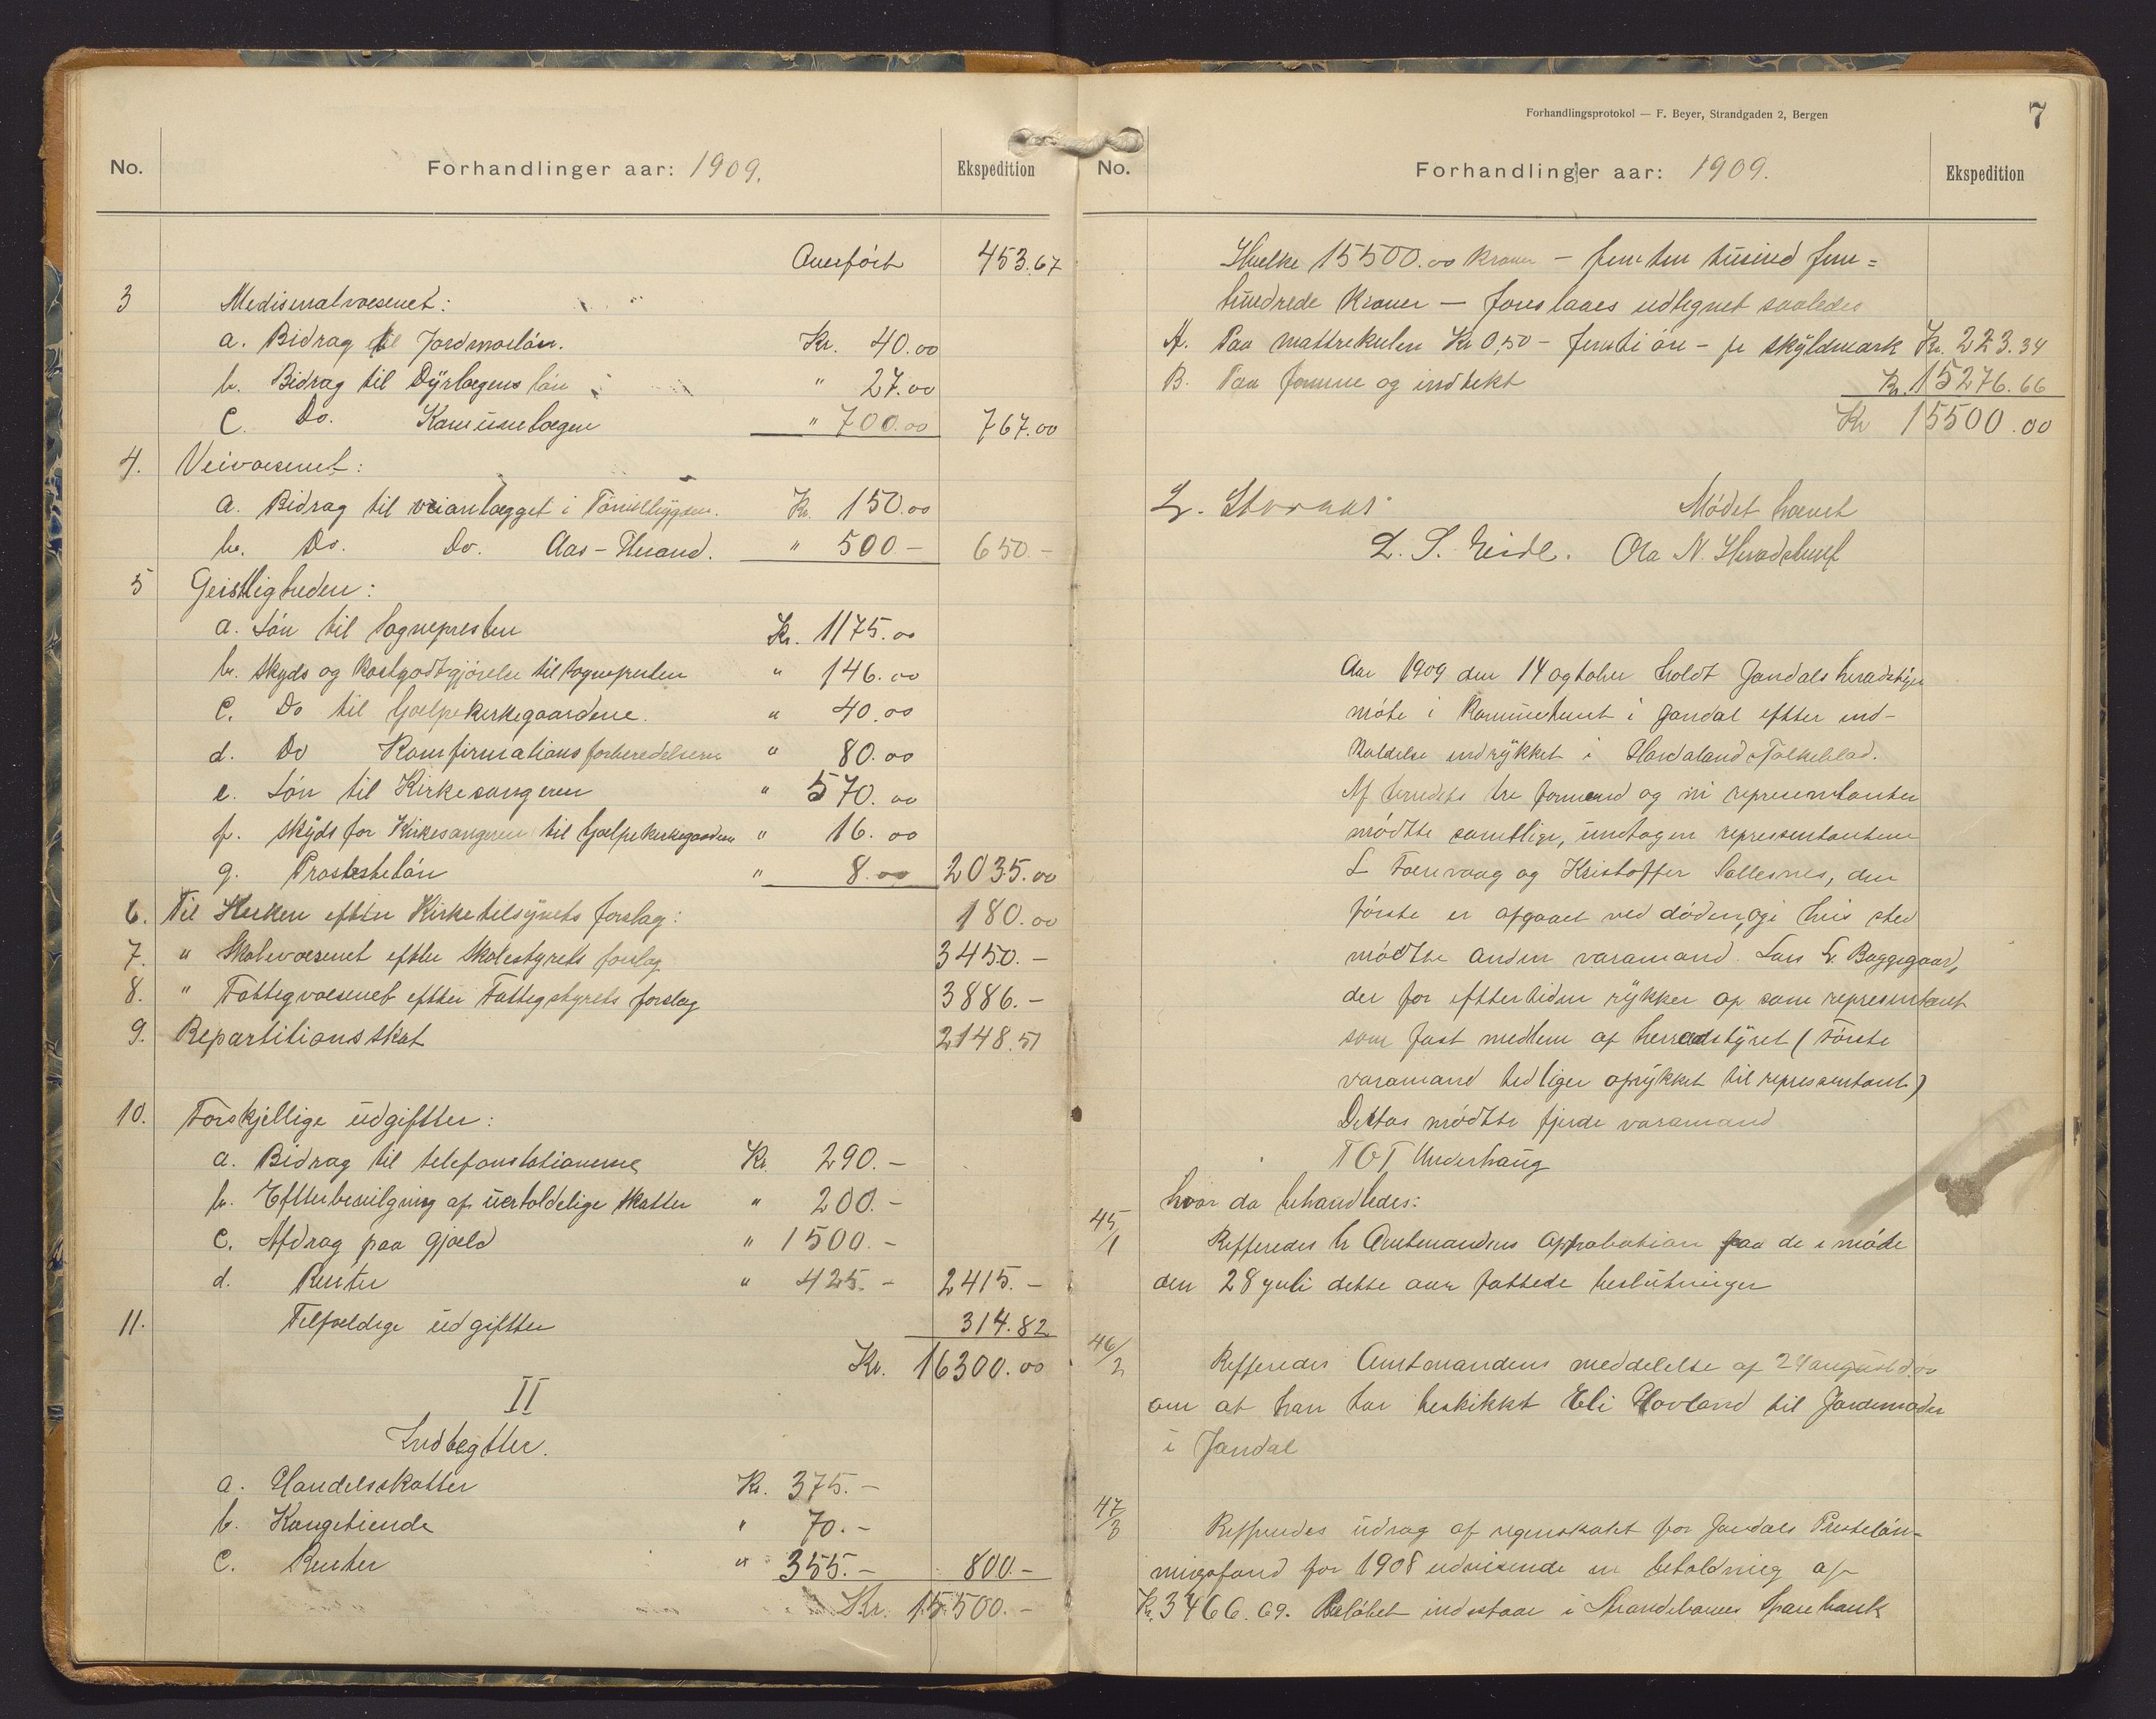 No.
Forhandlinger aar: 1909.
Ekspedition
Overført 453.67
3 Medisinalvæsenet:
a. Bidrag til Jordmorløn. Kr. 40.00
b. Bidrag til Dyrlægens løn " 27.00
c. Do. Komunelægen " 700.00 767.00
4. Veivæsenet:
a. Bidrag til veianlægget i Kr. 150.00
b. Do. Do. Aas-Herand. " 500 – 650.–
5 Geistligheden:
a. Løn til Sognepresten Kr. 1175.00
b. Skyds og Kostgodtgjørelse til sognepresten " 146.00
c. Do til hjælpekirkegaardene. " 40.00
d. Do Komfirmationsforberedelsern " 80.00
e. Løn til Kirkesangeren " 570.00
f. Skyds for Kirkesangeren til hjælpekirkegaardene " 16.00
g. Prosteløn " 8.00 2035.00
6. Til Kirken efter Kirketilsynets forslag: 180.00
7. " Skolevæsenet efter Skolestyrets forslag 3450.–
8. " Fattigvæsenet efter Fattigstyrets forslag 3886.–
9. Repartitionsskat 2148.51
10. Forskjellige udgifter:
a. Bidrag til telefonstationerne Kr. 290.–
b. Efterbevilgning af uerholdelige skatter " 200.–
c. Afdrag paa gjæld " 1500.–
d. Renter " 425.– 2415.–
11. Tilfældige udgifter 314.82
Kr. 16300.00
II
Indtægtter.
a. Handelsskatter Kr. 375.–
b. Kongetiende " 70.–
c. Renter " 355.– 800.–
Kr. 15500.–
Forhandlingsprotokol — F. Beyer, Strandgaden 2, Bergen
7
No.
Forhandlinger aar: 1909.
Ekspedition
Hvelke 15500.00 kroner – femten tusind fem=
hundrede Kroner – foreslaaes udlignet saaledes
A. Paa mattrekulen Kr 0,50 – femti øre – pr skyldmark Kr. 223.34
B. Paa formue og indtekt Kr. 15276.66
Kr 15500.00
Mødet hævet
L. S. Eide. Ola N.
Aar 1909 den 14 ogtober holdt Jondals heradstyre
møte i Komunehuset i Jondal efter ind-
kaldelse indrykket i Hordaland Folkeblad.
Af herredets tre formend og ni representanter
mødtte samtlige, undtagen repressentantene
L Foerevaag og Kristoffer Sollesnes, den
første er afgaaet ved døden, og i hans sted
mødtte anden varamand Lars L. Byggegaar,
der for eftertiden rykker op som representant
som fast medlem af herredstyret (Første
varamand tidliger oprykket til repressentant)
Destos mødtte fjerde varamand
T O T Underhaug
hvor da behandledes:
45/1 Refferedes hr Amtmandens approbation paa de i møde
den 28 juli dette aar fattede beslutninger
46/2 Refferedes Amtmandens meddelelse af 24 august d.a
om at han har beskikket Eli Hovland til Jordemoder
i Jondal
47/3 Refferedes udrag af regenskabet for Jondals Presteløn-
ningsfond for 1908 udvisende en beholdning af
Kr. 3466.69. Beløbet indestaar i Strandebarms Sparebank